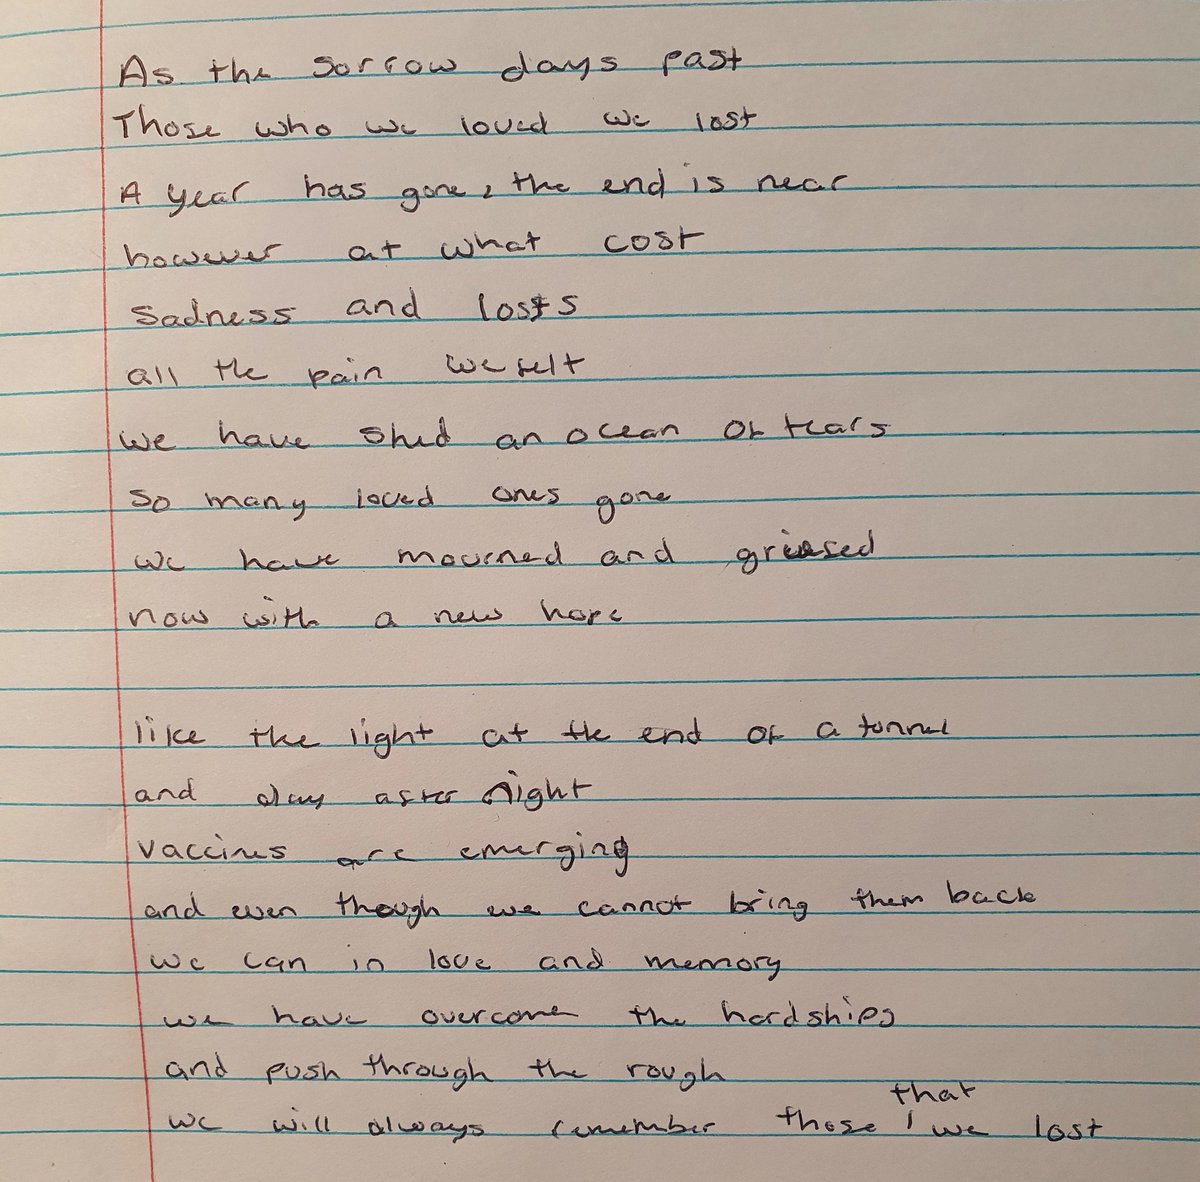 As the sorrow days past
Those who we loved we lost
A year has gone, the end is near
however at what cost
Sadness and losts
all the pain we felt
we have shed an ocean of tears
so many loved ones gone
we have mourned and griesed
now with a new hope
like the light at the end of a tunnel
and day after night
vaccines are emerging
and even though we cannot bring them back
we can in love and memory
we have overcome the hardships
and push through the rough
we will always remember those that we lost